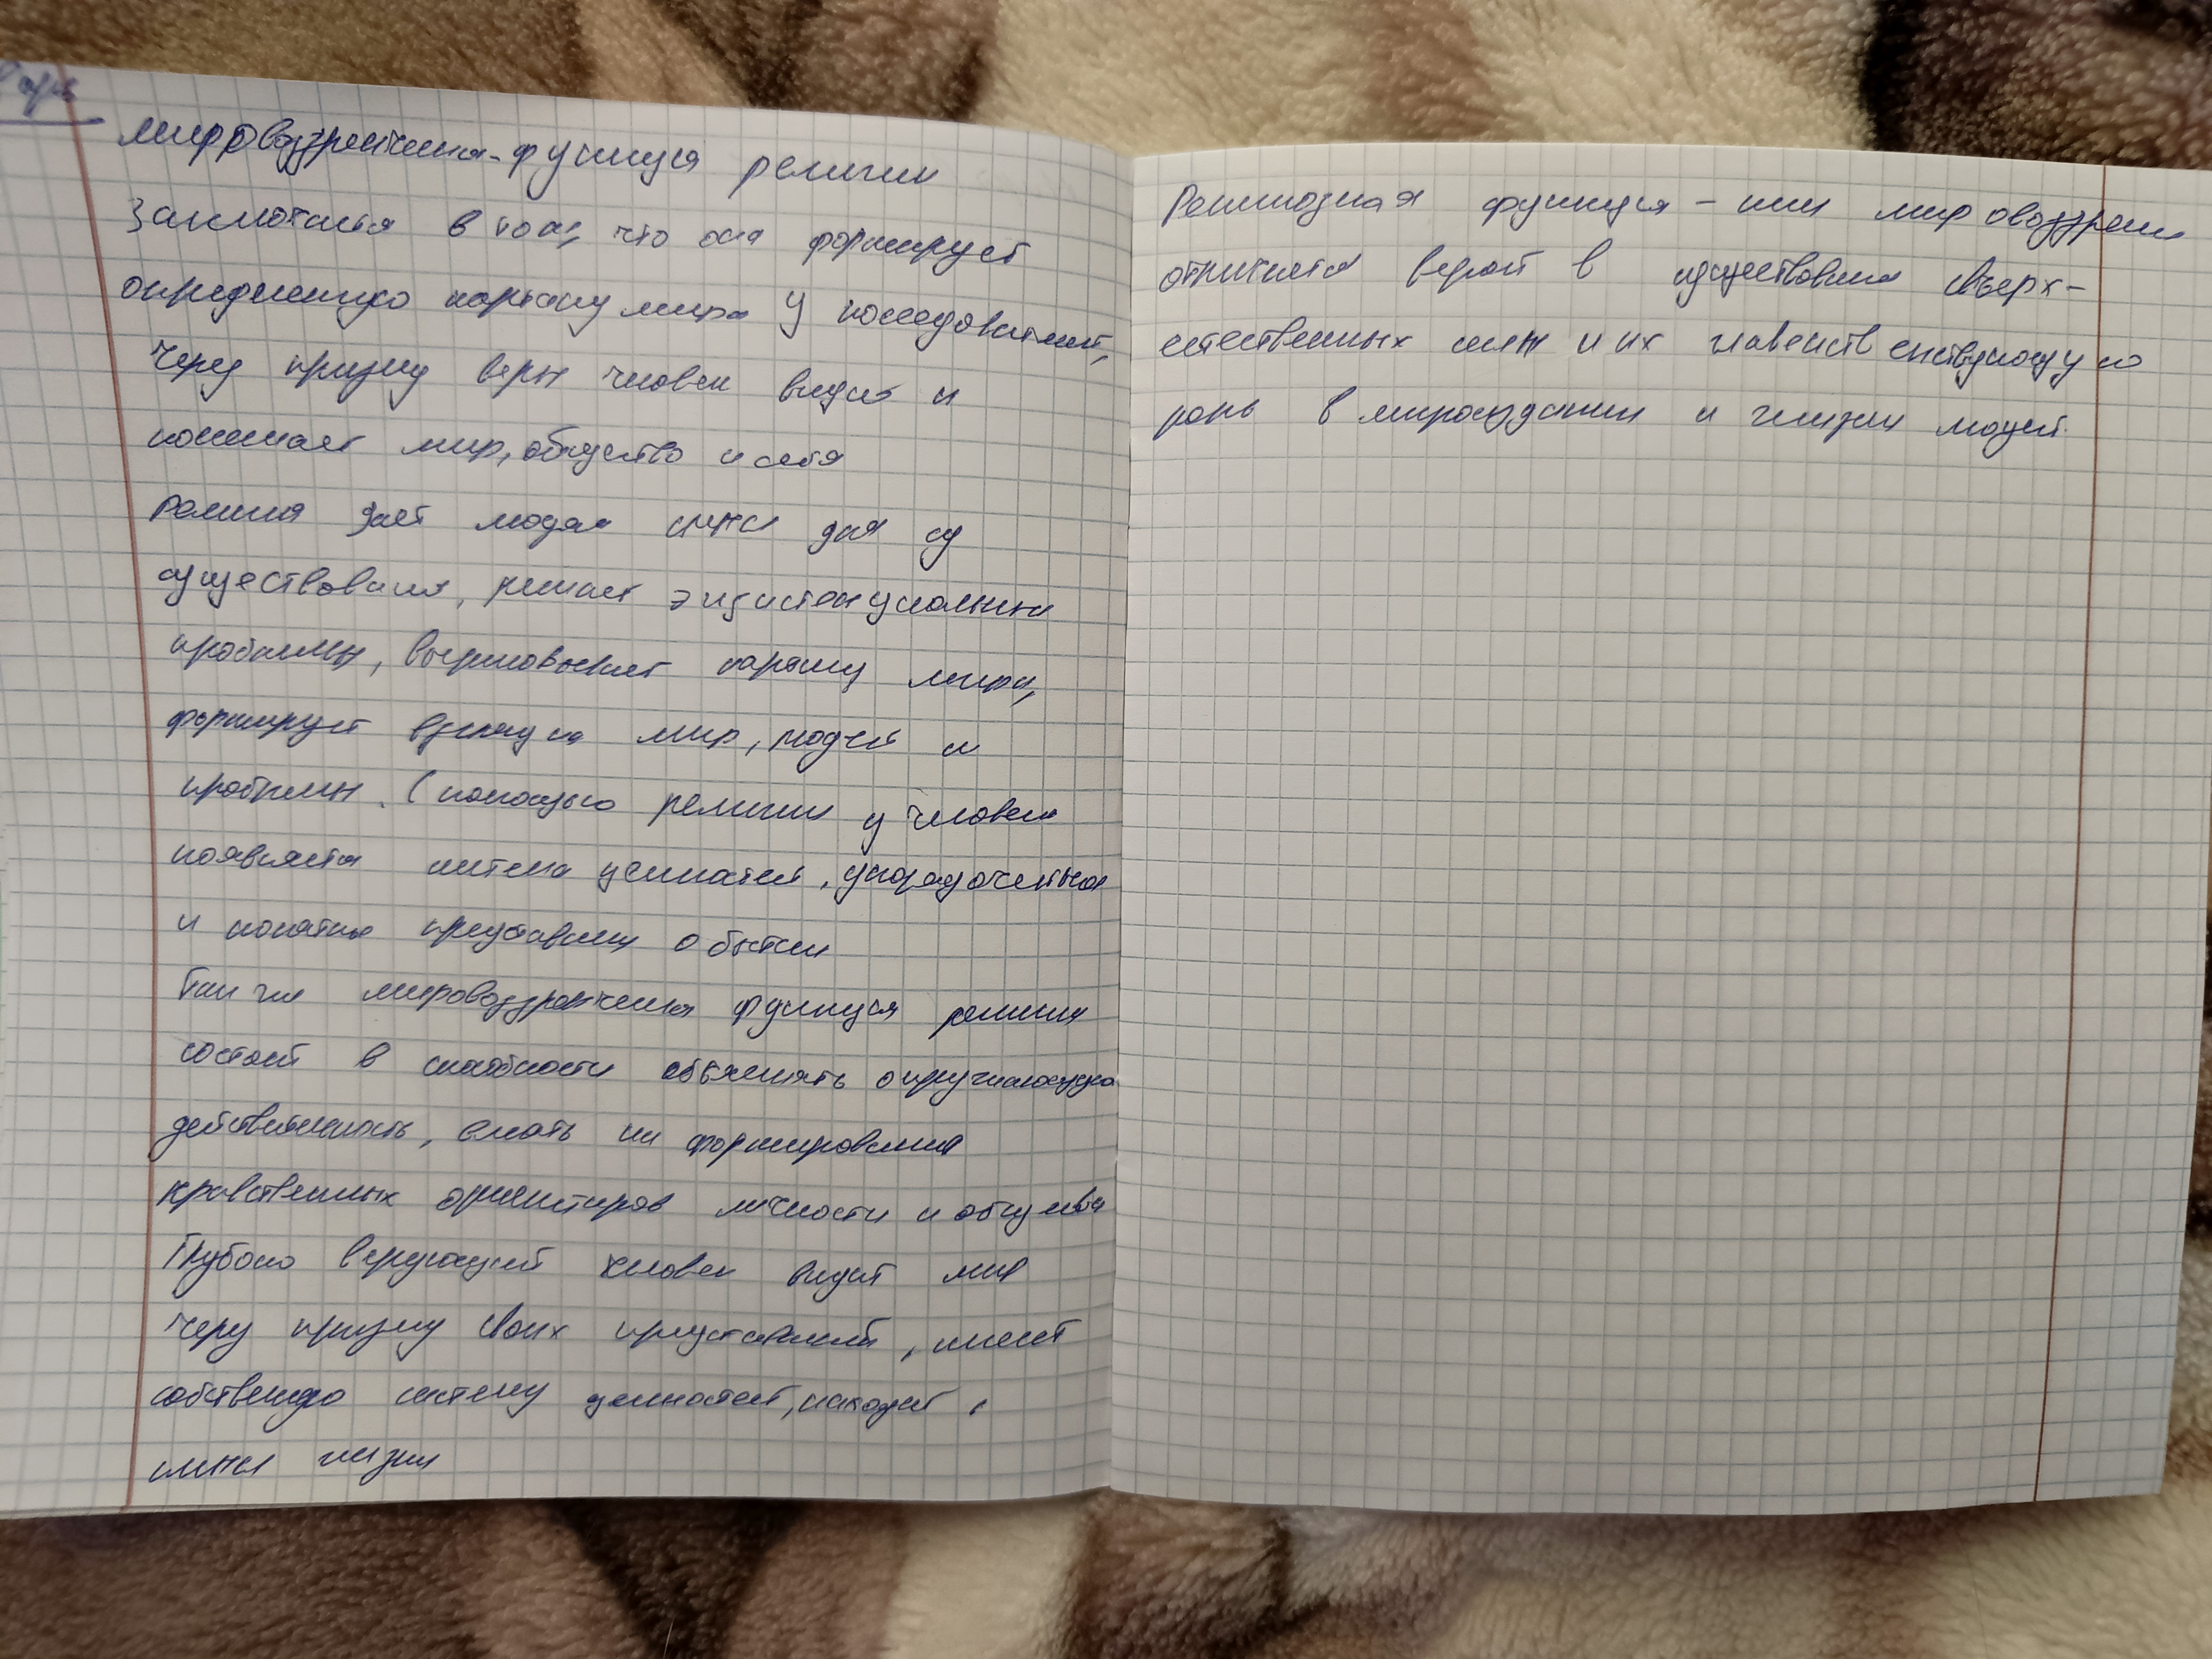 мировоззренческая-функция религии
Заключается в том, что она формирует
определенную картину мира у последователей,
через призму веры человек видит и
понимает мир, общество и себя
религия дает людям смысл для су
существования, решает экзистенциальные
проблемы, вырисовывает картину мира,
формирует взгляд на мир, людей и
проблемы. С помощью религии у человека
появляется система ценностей, упорядоченная
и понятные представления о бытии
Так же мировоззренческая функция религии
состоит в способности объяснять окружающую
действительность, влиять на формирование
нравственных ориентиров личности и общества
Глубоко верующий человек видит мир
через призму своих представлений, имеет
собственную систему ценностей, находит
смысл жизни
Религиозная функция - тип мировоззрени
отличается верой в существование сверх-
естественных сил и их главенств енствующую
роль в мироздании и жизни людей.